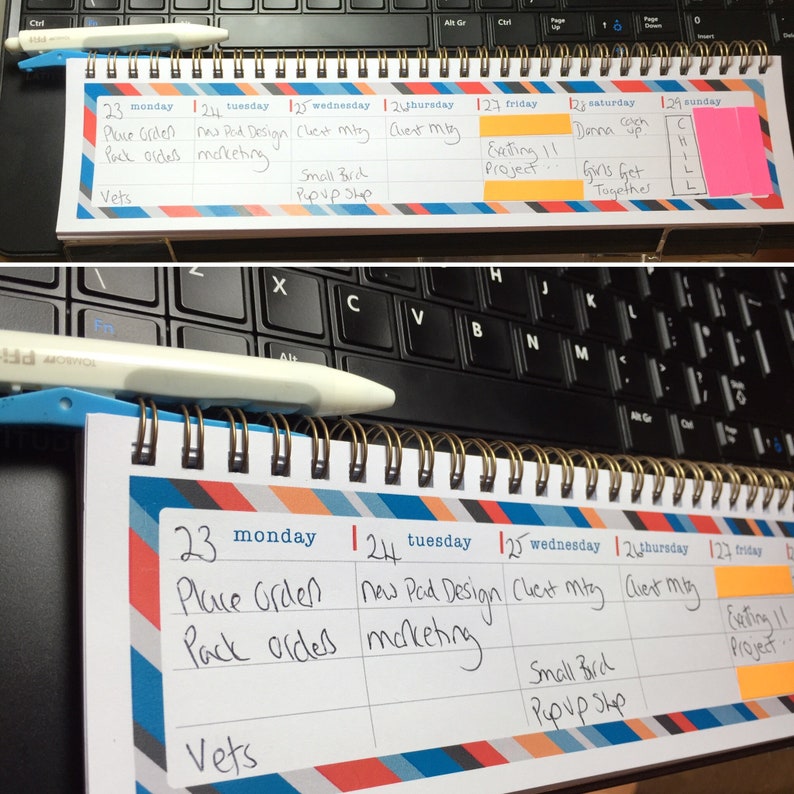 Ctrl
Fn
Alt
Alt Gr
Ctrl
Page Up
Page Down
0
Insert
TOMBOW
23 monday
24 tuesday
25 wednesday
26 thursday
27 friday
28 saturday
29 sunday
Place Order
new Pad Design
Client Mtg
Client Mtg
Donna catch up
CHILL
Pack orders
marketing
Exciting!!
Project...
Small Bird
Girls Get
Together
Vets
Pop Up Shop
\
Z
X
C
V
B
N
M
H
J
K
L
Fn
Alt
Alt Gr
Ctrl
TOMBOW
23 monday
24 tuesday
25 wednesday
26 thursday
27 friday
Place Order
new Pad Design
Client Mtg
Client Mtg
Pack orders
marketing
Exciting!!
Project...
Small Bird
Pop Up Shop
Vets